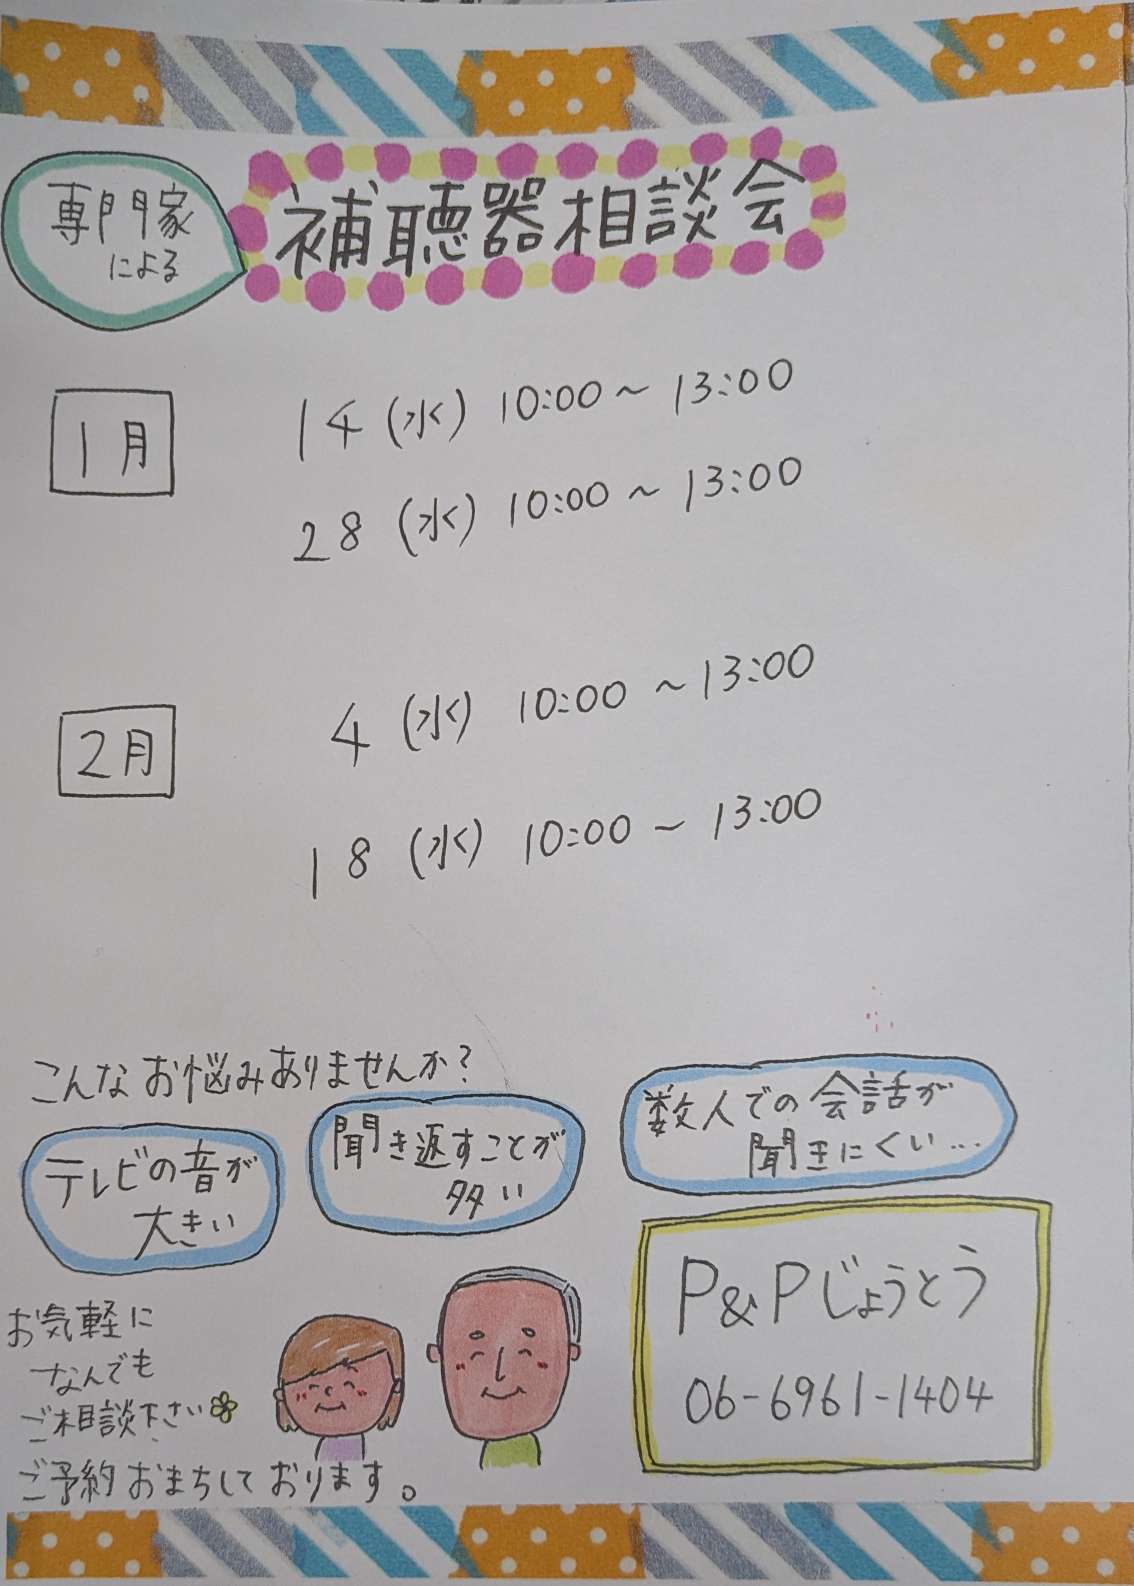 専門家
による
補聴器相談会
1月
14 (水) 10:00～13:00
28 (水) 10:00～13:00
2月
4 (水) 10:00～13:00
18 (水) 10:00～13:00
こんなお悩みありませんか?
テレビの音が
大きい
聞き返すことが
多い
数人での会話が
聞きにくい...
お気軽に
なんでも
ご相談下さい
ご予約おまちしております。
P&Pじょうとう
06-6961-1404